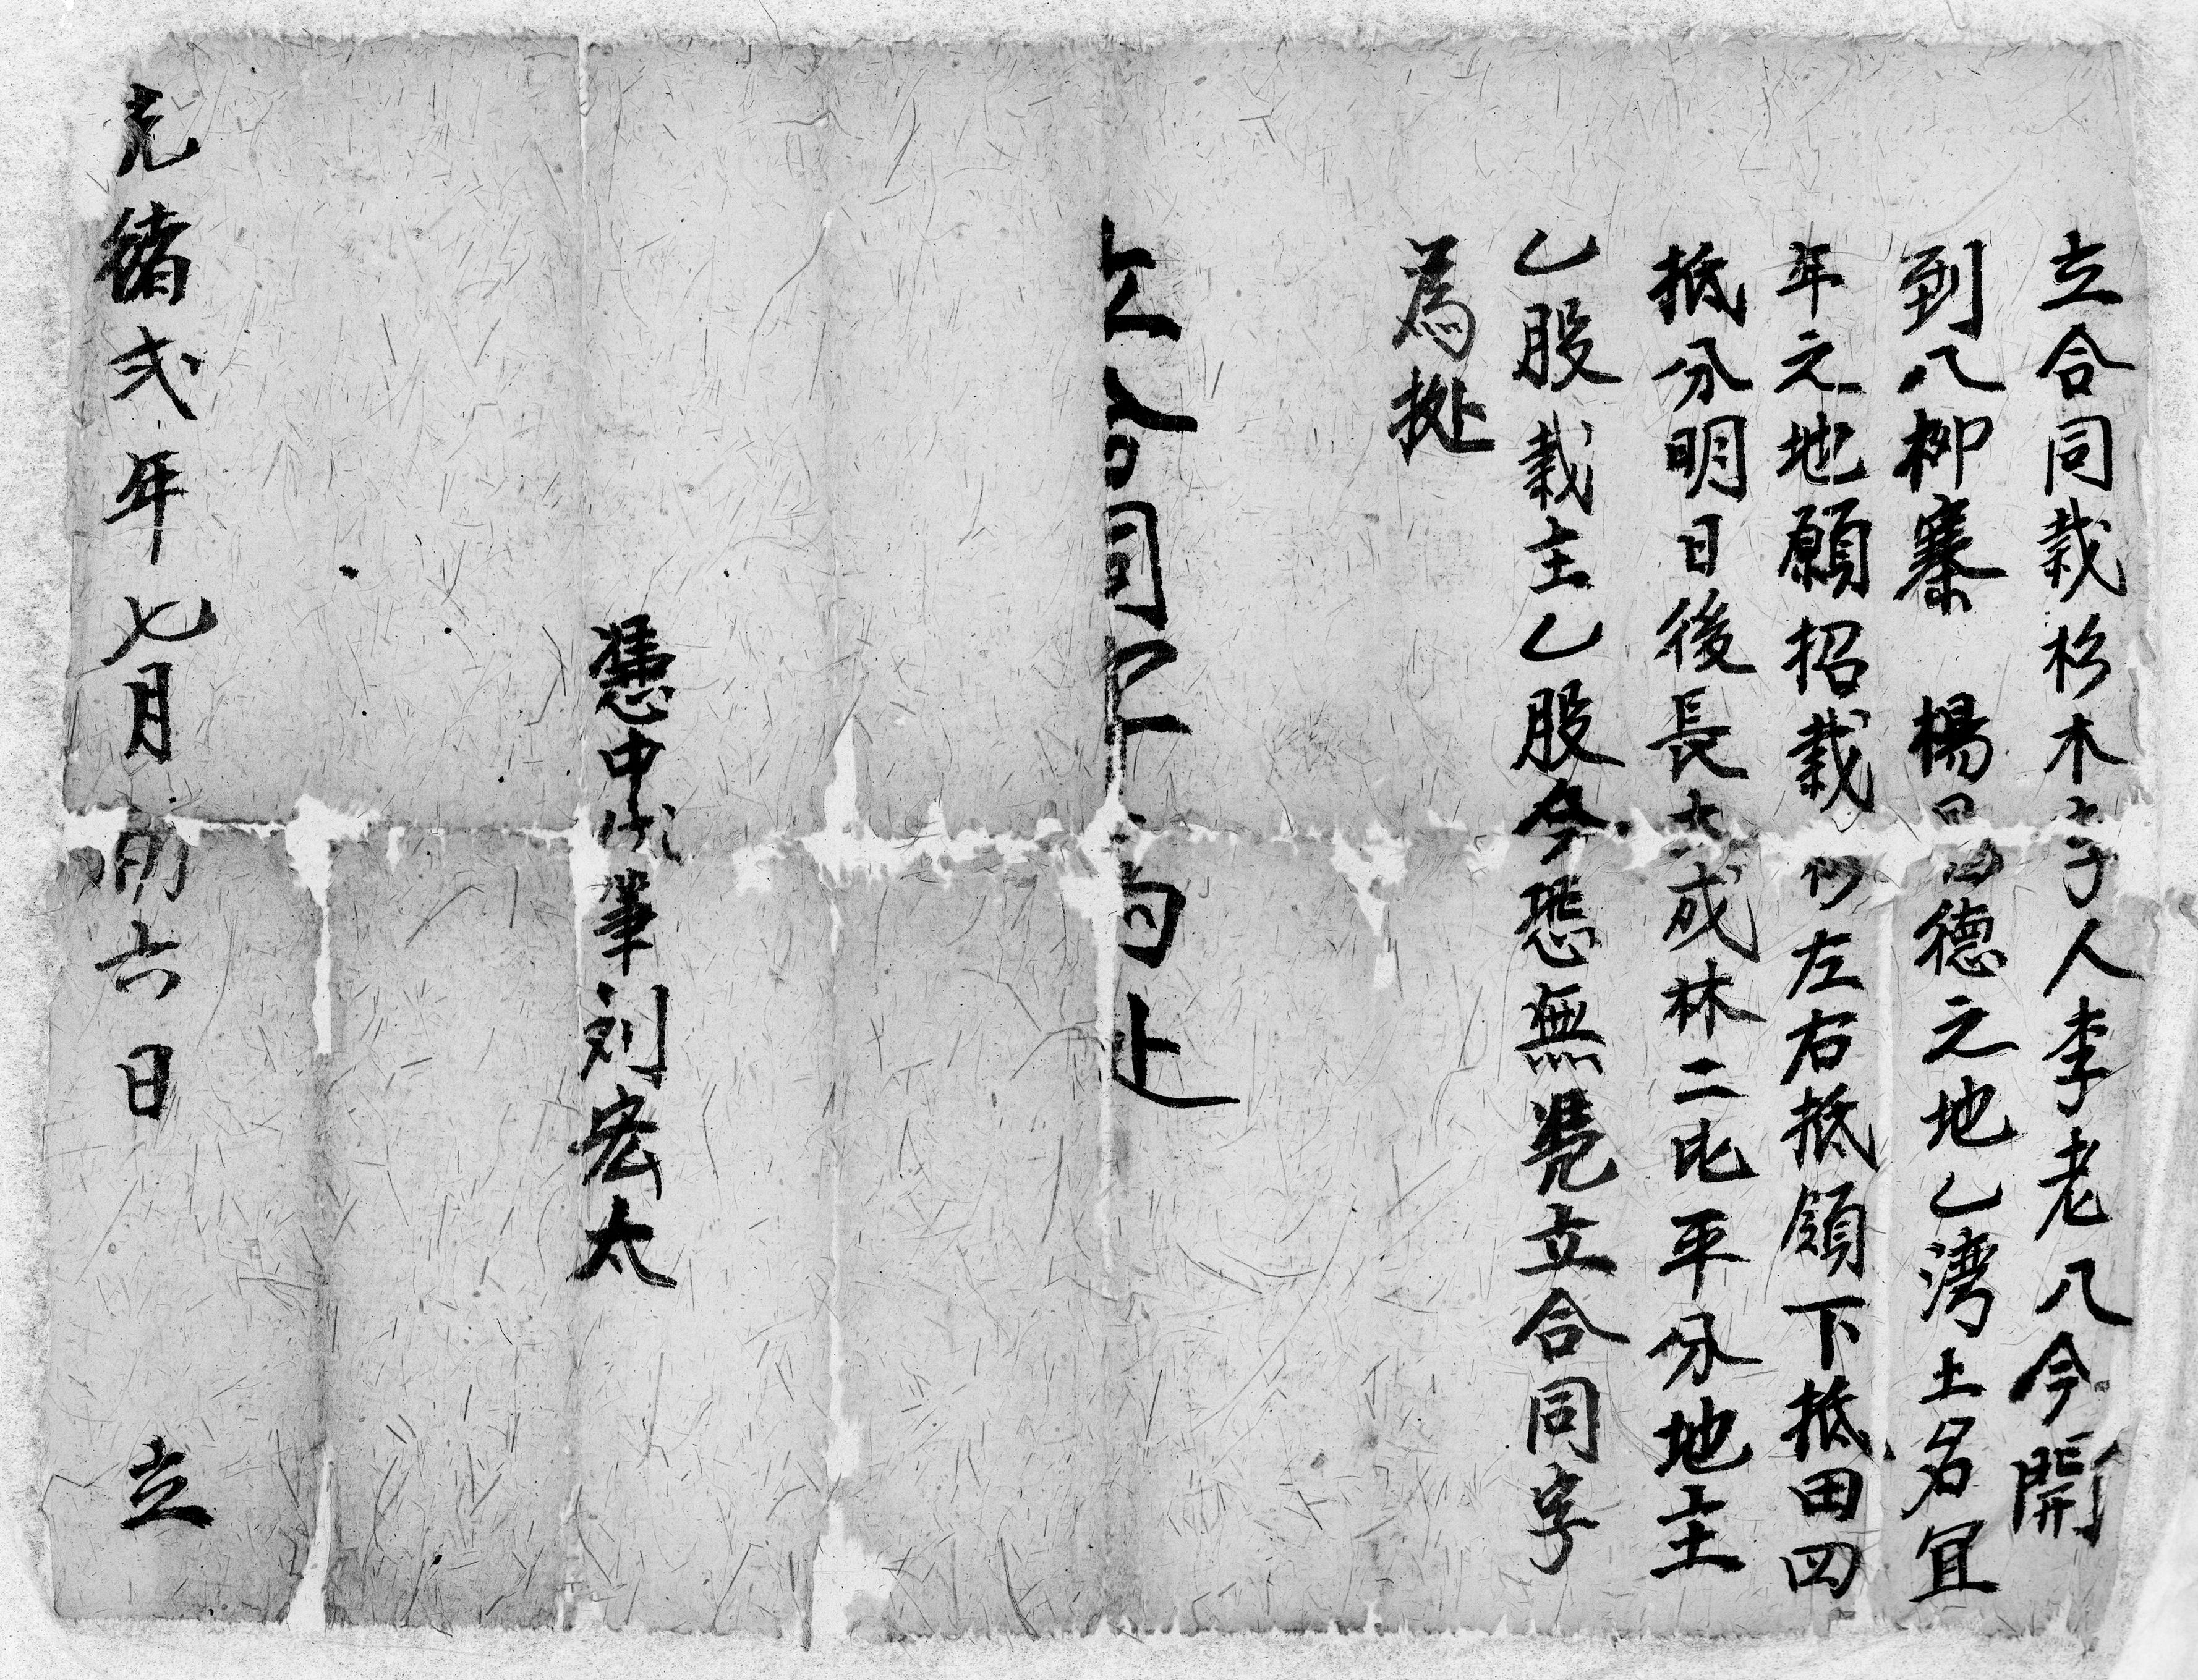 立合同栽杉木字人李老八今開
到八柳寨楊昌德之地乙湾土名冝
年之地願招栽 左右抵領下抵田四
抵分明日後長大成林二比平分地主
乙股栽主乙股今恐無凴立合同字
為㨿
立合同字為㨿
憑中代筆刘宏太
光緒弍年七月初六日立